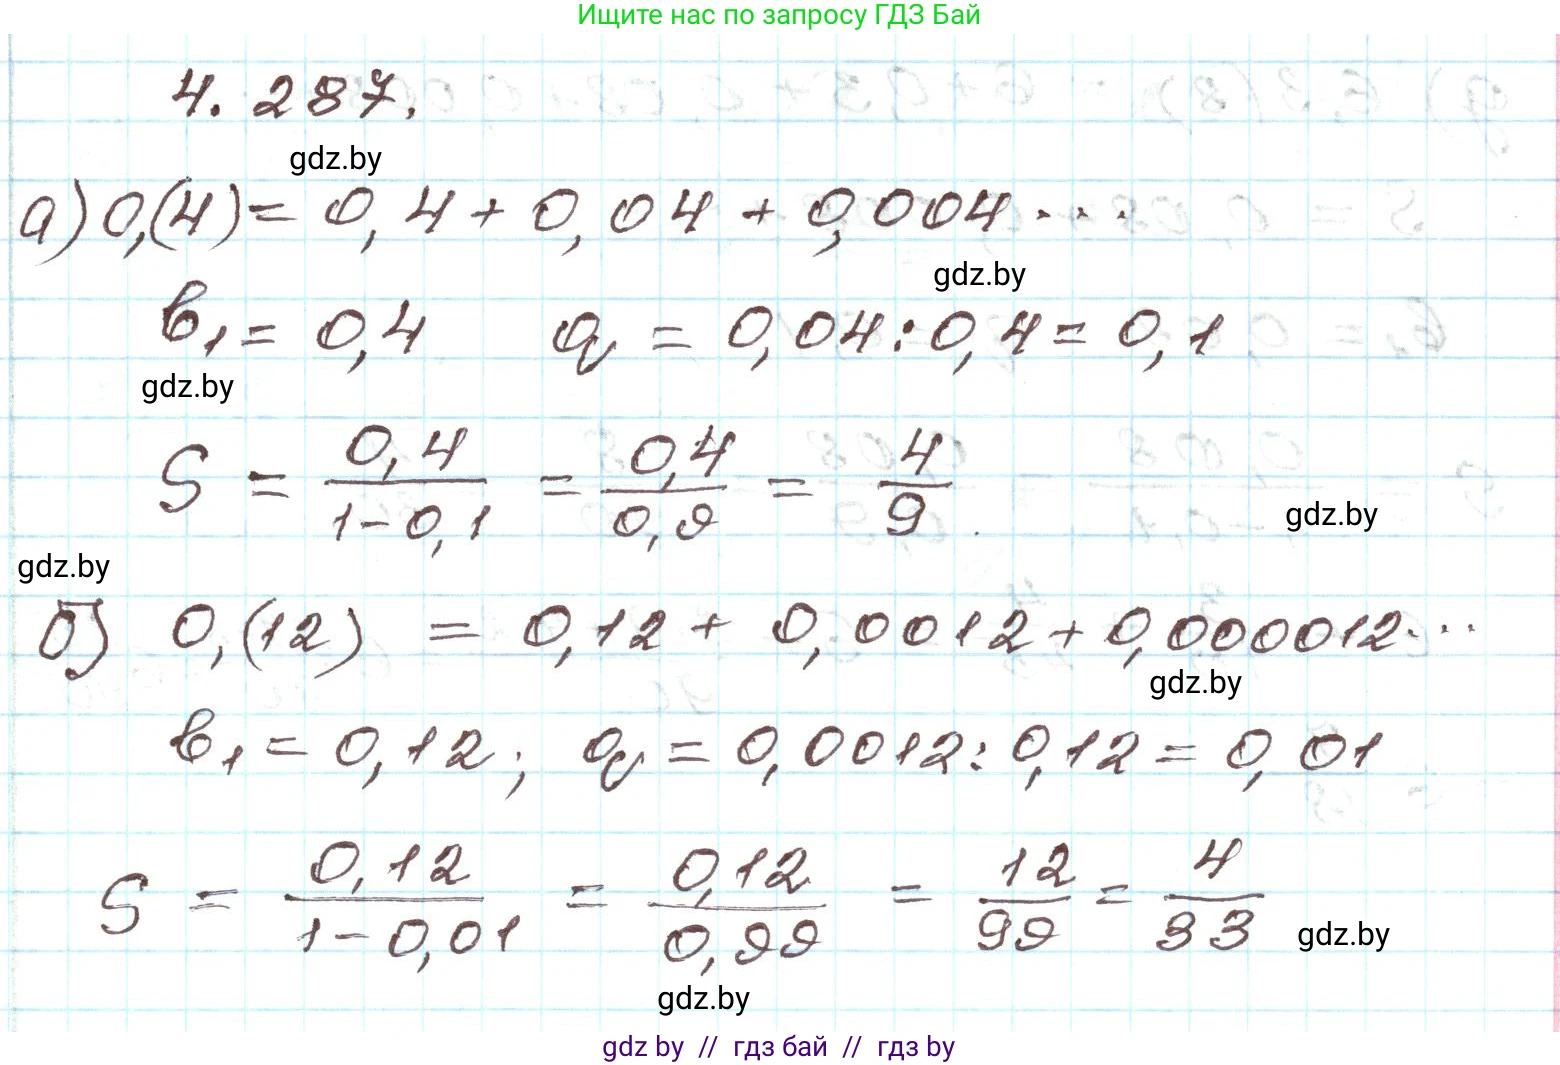 Ищите нас по запросу ГДЗ Бай
4.287.
gdz.by
а) 0,(4) = 0,4 + 0,04 + 0,004...
gdz.by
b₁ = 0,4 q = 0,04 : 0,4 = 0,1
gdz.by
S = 0,4/(1-0,1) = 0,4/0,9 = 4/9
gdz.by
gdz.by
б) 0,(12) = 0,12 + 0,0012 + 0,000012...
gdz.by
b₁ = 0,12; q = 0,0012 : 0,12 = 0,01
S = 0,12/(1-0,01) = 0,12/0,99 = 12/99 = 4/33
gdz.by
gdz.by
gdz by // гдз бай // гдз by